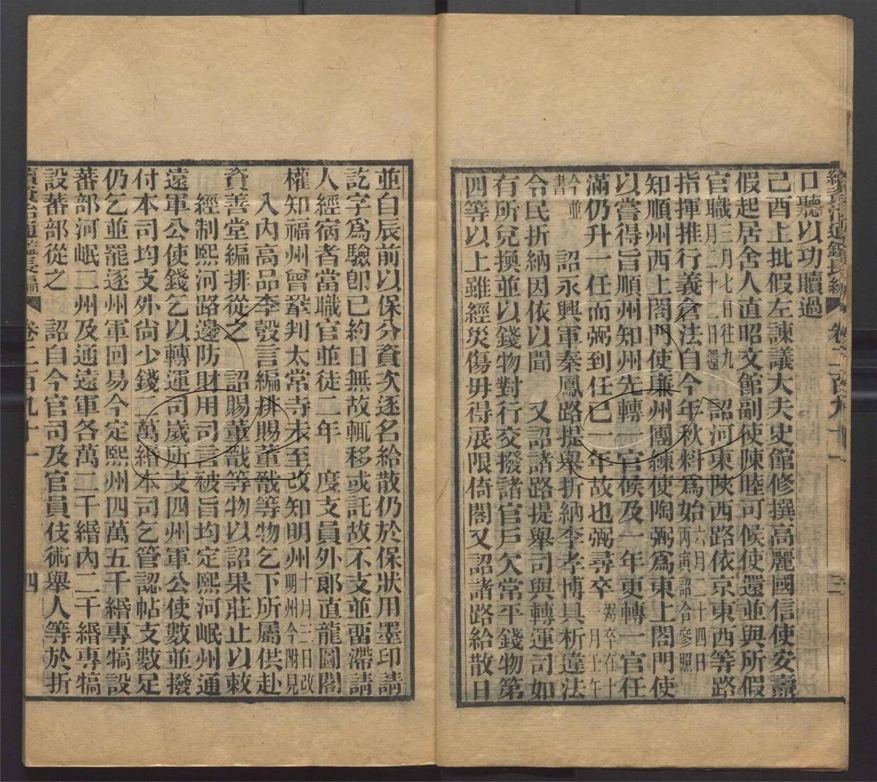 續資治通鑑長編 卷二百九十一 三
口聽以功贖過
己酉上批假左諫議大夫史館修撰高麗國信使安燾
假起居舍人直昭文館副使陳睦可候使還並與所假
官職三月七日往九月二十二日還 詔河東陝西路依京東西等路
指揮推行義倉法自今年秋料爲始六月二十四日丙寅詔合參照
知順州西上閤門使廉州團練使陶弼爲東上閤門使
以嘗得旨順州知州先轉一官候及一年更轉一官任
滿仍升一任而弼到任已一年故也弼尋卒弼卒在十一月壬午
今並書 詔永興軍秦鳳路提舉折納李孝博具析違法
令民折納因依以聞 又詔諸路提舉司與轉運司如
有所兌換並以錢物對行交撥諸官戶欠常平錢物第
四等以上雖經災傷毋得展限倚閣又詔諸路給散日
並自辰前以保分資次逐名給散仍於保狀用墨印請
訖字爲驗卽已約日無故輒移或託故不支並畱滯請
人經宿者當職官並徒二年 度支員外郎直龍圖閣
權知福州曾鞏判太常寺未至改知明州十月三日改明州今附見
入內高品李瑴言編排賜董戩等物乞下所屬供赴
資善堂編排從之 詔賜董戩等物以詔果莊止以敕
經制熙河路邊防財用司言被旨均定熙河岷州通
遠軍公使錢乞以轉運司歲所支四州軍公使數並撥
付本司均支外尚少錢二萬緡本司乞管認帖支數足
仍乞並罷逐州軍回易今定熙州四萬五千緡專犒設
蕃部河岷二州及通遠軍各萬二千緡內二千緡專犒
設蕃部從之 詔自今官司及官員伎術舉人等於折
續資治通鑑長編 卷二百九十一 四